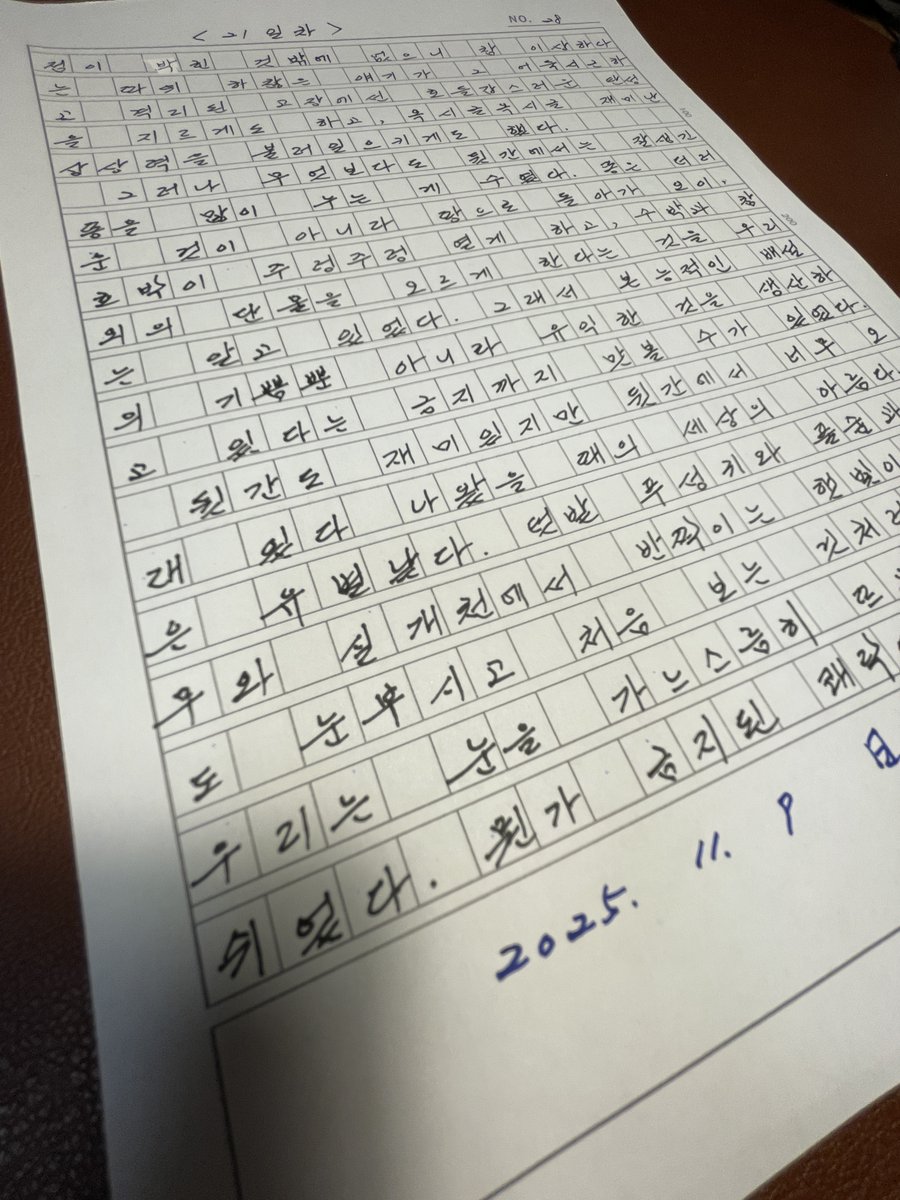 < 21 일차 >
NO. 28
점이 박힌 것 밖에 없으니 참 이상하다
는 따위 하찮은 얘기가 그 어둑시근하
고 격리된 고장에선 호들갑스러운 탄성
을 지르게도 하고, 옥시글옥시글 재미난
상상력을 불러일으키게도 했다.
그러나 무엇보다도 뒷간에서는 잘생긴
똥을 많이 누는 게 수였다. 똥은 더러
운 것이 아니라 땅으로 돌아가 오이,
호박이 주렁주렁 열게 하고, 수박과 참
외의 단물을 오르게 한다는 것을 우리
는 알고 있었다. 그래서 본능적인 배설
의 기쁨뿐 아니라 유익한 것을 생산하
고 있다는 긍지까지 맛볼 수가 있었다.
뒷간도 재미있지만 뒷간에서 너무 오
래 있다 나왔을 때의 세상의 아름다
은 유별났다. 텃밭 푸성귀와 풀숲과
우와 실개천에서 반짝이는 햇빛이
도 눈부시고 처음 보는 것처럼
우리는 눈을 가느스름히
쉬었다. 뭔가 금지된 쾌락
2025. 11. 9 日